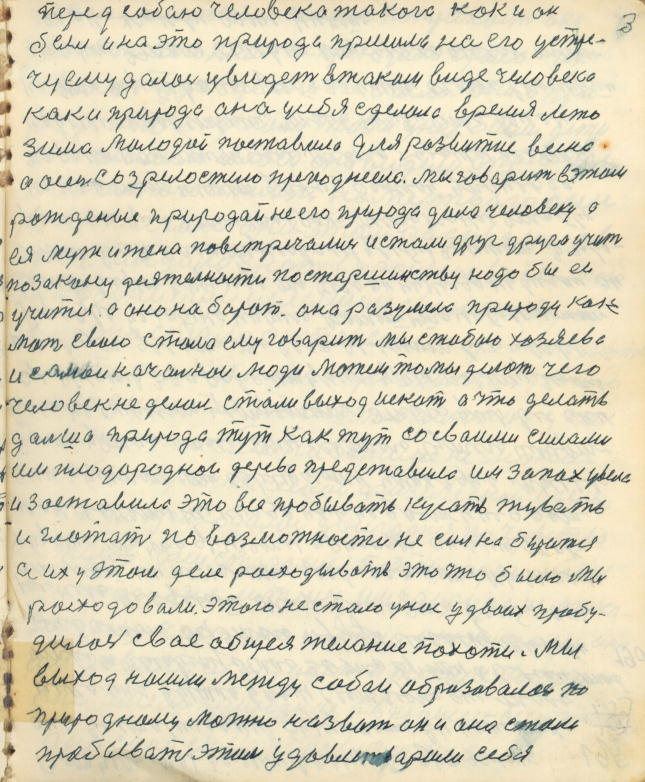 3
перед собаю человека такога как и он
был и на это природа пришила на его устре-
чу ему далой увидет втаком виде человека
как и природа она цибя сделала время лето
зима молодой поставила для развитие весна
а осен созрелостило преподнесла. мы говарит вэтом
рожденые природай неего природа дала человеку а
ея муж и жена повстречалис и стали друг друга учит
по закону деятелности постаршинству надо бы ей
учитц. а оно на барот. она разумела природу как
мат сваю стала ему говарит мы стобою хозяева
и самои началнои люди можем то мы делат чего
человек не делал стали выход искат а что делать
далша природа тут как тут со сваими силами
им плодародной дерево представила им запах цвела
и заставила это все пробывать кусать жувать
и глотат по возможности не сил на
их у этом деле расходывать это что было мы
расходовали. этого не стало унас удваих пробу-
дилос свае общея желание похоти. Мы
выход нашли между сабой образовалас по
природному можно назват он и она стали
пробыват этим удовлетварили себя